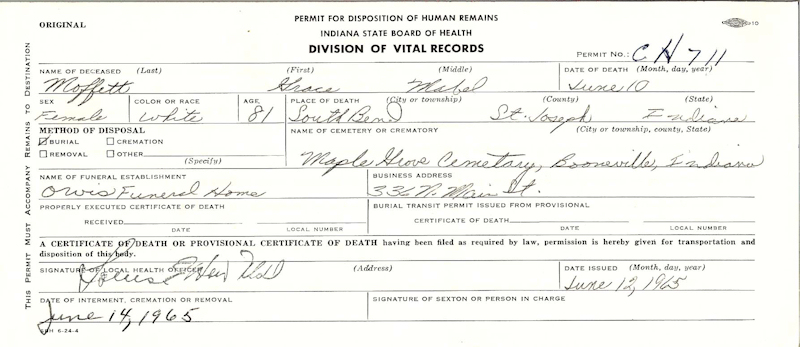 ORIGINAL
PERMIT FOR DISPOSITION OF HUMAN REMAINS
INDIANA STATE BOARD OF HEALTH
DIVISION OF VITAL RECORDS
PERMIT NO.: CH 711
NAME OF DECEASED (Last) (First) (Middle) DATE OF DEATH (Month, day, year)
Moffett Grace Mabel June 10
SEX COLOR OR RACE AGE PLACE OF DEATH (City or township) (County) (State)
Female White 81 South Bend St. Joseph Indiana
METHOD OF DISPOSAL NAME OF CEMETERY OR CREMATORY (City or township, county, State)
BURIAL CREMATION
REMOVAL OTHER
(Specify)
Maple Grove Cemetary, Booneville, Indiana
NAME OF FUNERAL ESTABLISHMENT BUSINESS ADDRESS
Orvis Funeral Home 336 N. Main St.
PROPERLY EXECUTED CERTIFICATE OF DEATH BURIAL TRANSIT PERMIT ISSUED FROM PROVISIONAL
RECEIVED CERTIFICATE OF DEATH
DATE LOCAL NUMBER DATE LOCAL NUMBER
A CERTIFICATE OF DEATH OR PROVISIONAL CERTIFICATE OF DEATH having been filed as required by law, permission is hereby given for transportation and
disposition of this body.
SIGNATURE OF LOCAL HEALTH OFFICER (Address) DATE ISSUED (Month, day, year)
June 12, 1965
DATE OF INTERMENT, CREMATION OR REMOVAL SIGNATURE OF SEXTON OR PERSON IN CHARGE
June 14, 1965
6-24-4
THIS PERMIT MUST ACCOMPANY REMAINS TO DESTINATION